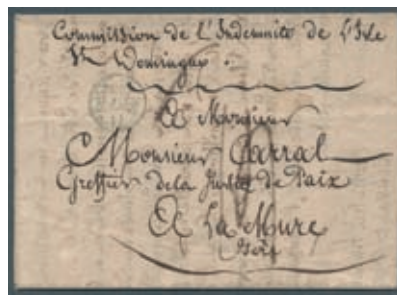 Commission de l'Indemnité de l'Isle
St Domingue.
A Monsieur
Monsieur Carral
Greffier de la Justice de Paix
A La Mure